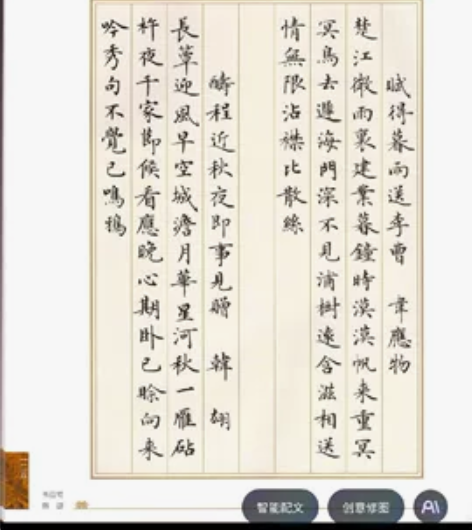 賦得暮雨送李曹 韋應物
楚江微雨裏建業暮鐘時漠漠帆來重冥
冥鳥去遲海門深不見浦樹遠含滋相送
情無限沾襟比散絲
醻程近秋夜即事見贈 韓 翃
長簟迎風早空城澹月華星河秋一雁砧
杵夜千家節候看應晚心期卧已賒向来
吟秀句不覺已鳴鴉
智能配文 创意修图 AI